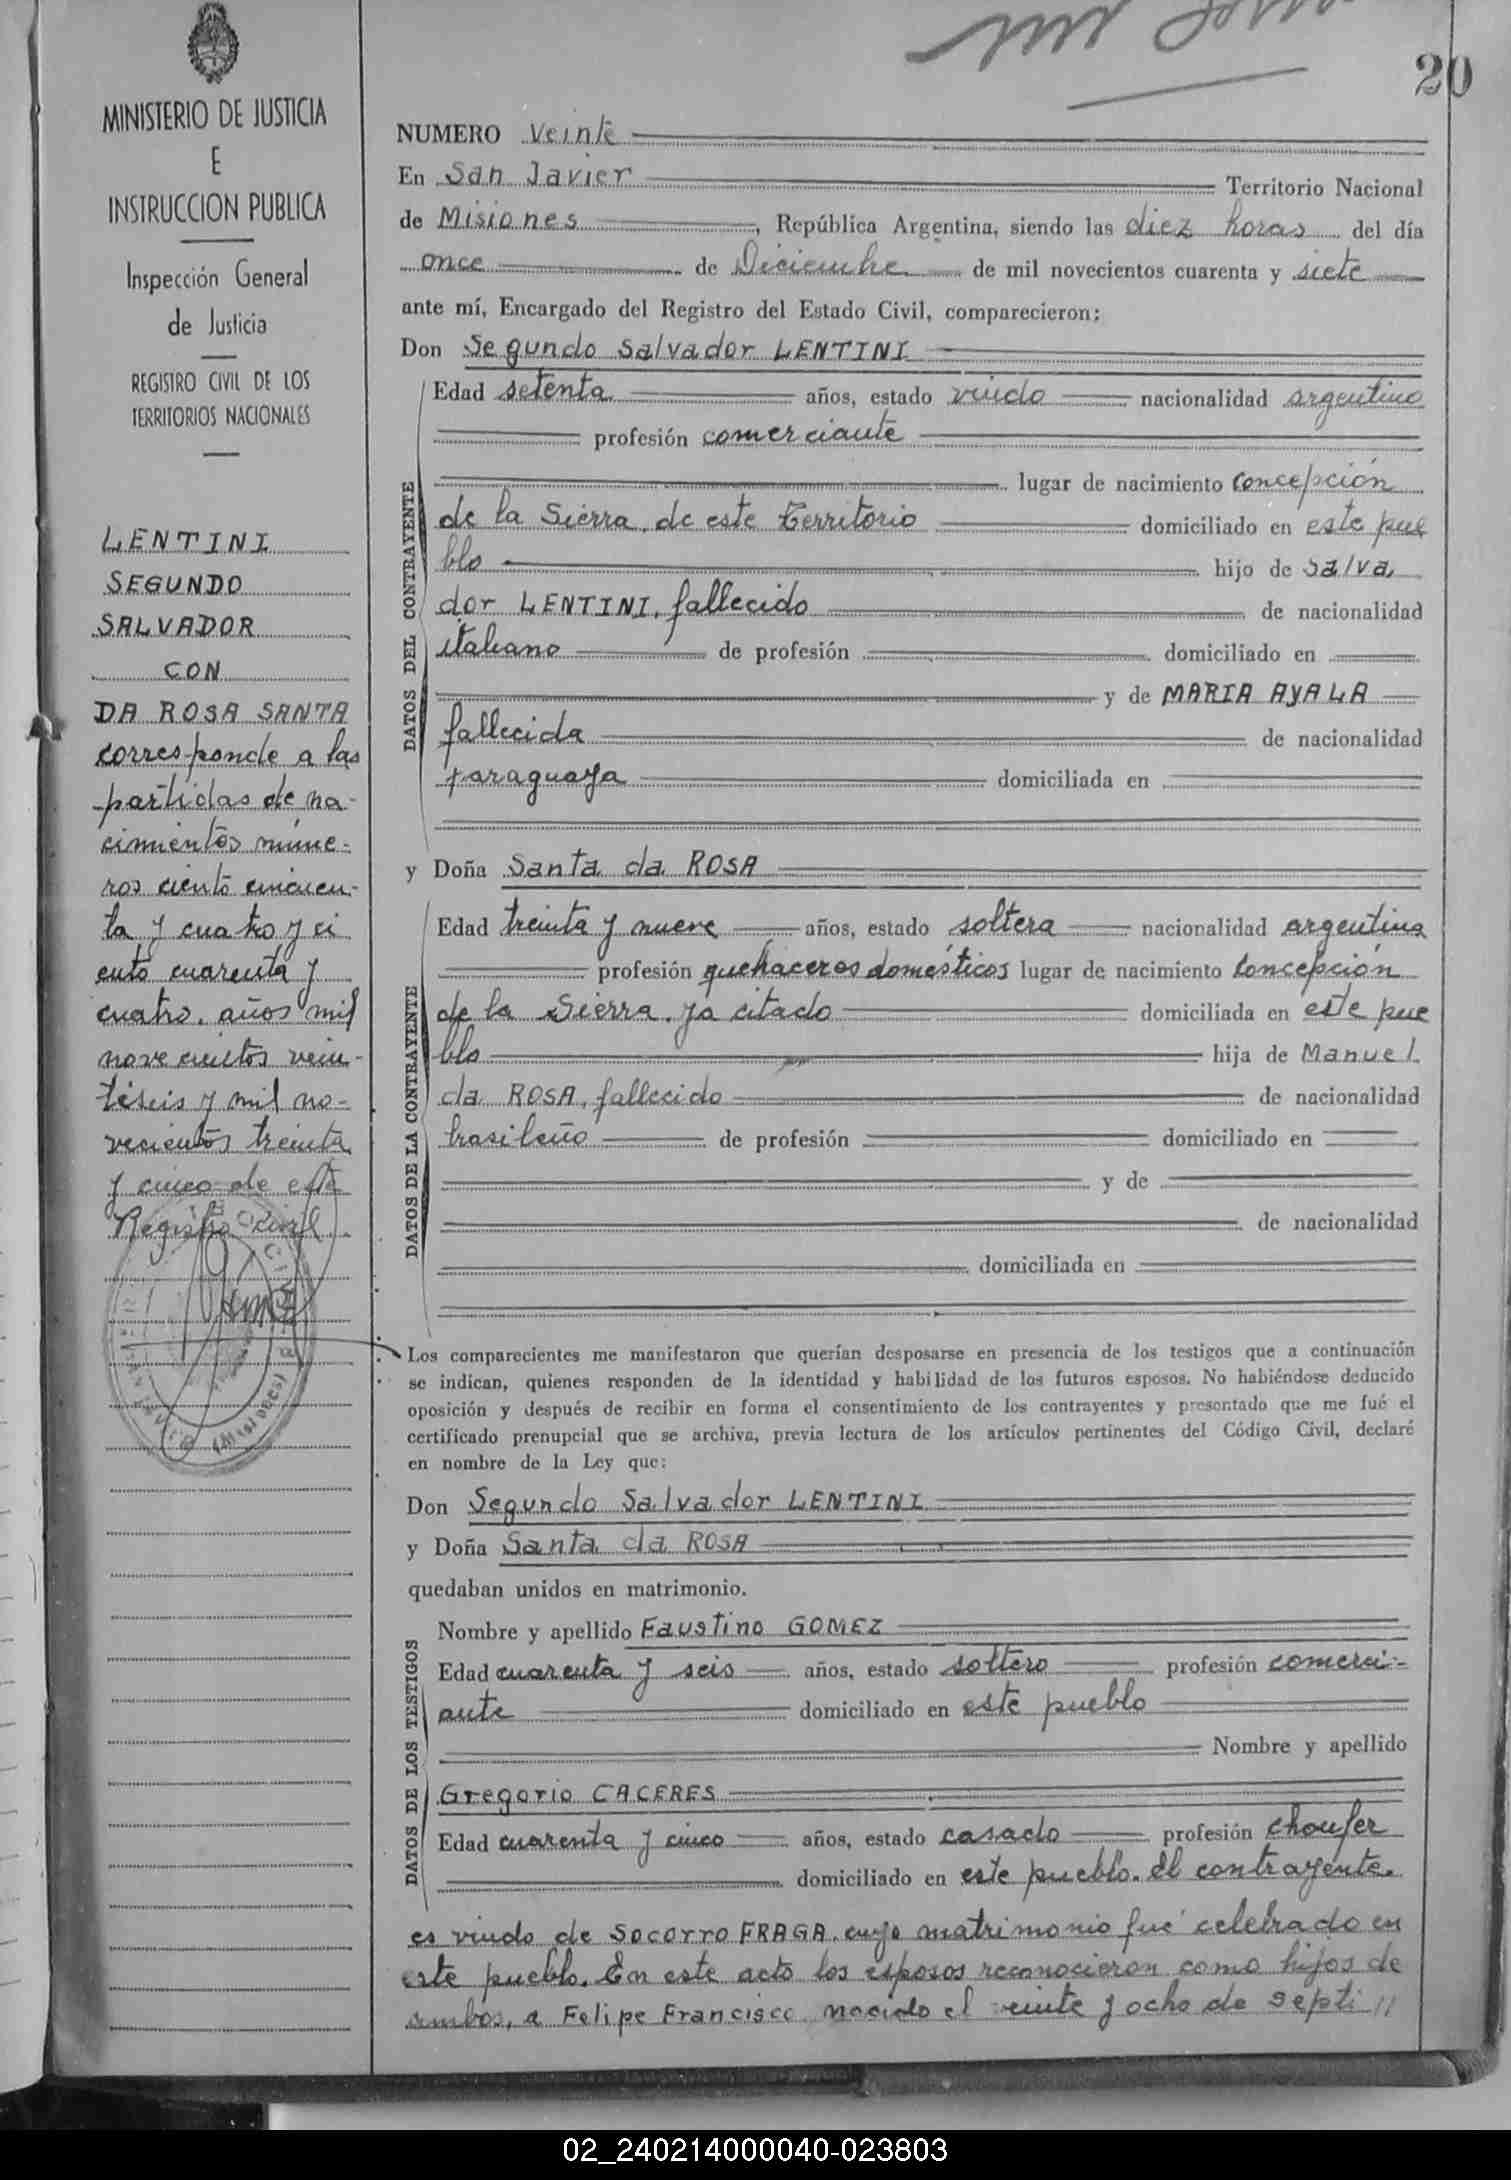 20
MINISTERIO DE JUSTICIA
E
INSTRUCCION PUBLICA
Inspección General
de Justicia
REGISTRO CIVIL DE LOS
TERRITORIOS NACIONALES
LENTINI
SEGUNDO
SALVADOR
CON
DA ROSA SANTA
corresponde a las
partidas de na-
cimientos núme-
ros ciento cincuen-
ta y cuatro y ci
ento cuarenta y
cuatro, años mil
novecientos vein-
tiseis y mil no-
vecientos treinta
y cinco de este
Registro Civil
NUMERO Veinte
En San Javier Territorio Nacional
de Misiones, República Argentina, siendo las diez horas del día
once de Diciembre de mil novecientos cuarenta y siete
ante mí, Encargado del Registro del Estado Civil, comparecieron:
Don Segundo Salvador LENTINI
DATOS DEL CONTRAYENTE
Edad setenta años, estado viudo nacionalidad argentino
profesión comerciante
lugar de nacimiento Concepción
de la Sierra, de este territorio domiciliado en este pue
blo hijo de Salva
dor LENTINI, fallecido de nacionalidad
italiano de profesión domiciliado en
y de MARIA AYALA
fallecida de nacionalidad
paraguaya domiciliada en
y Doña Santa da ROSA
DATOS DE LA CONTRAYENTE
Edad treinta y nueve años, estado soltera nacionalidad argentina
profesión quehaceres domésticos lugar de nacimiento Concepción
de la Sierra, ya citado domiciliada en este pue
blo hija de Manuel
da ROSA, fallecido de nacionalidad
brasileño de profesión domiciliado en
y de
de nacionalidad
domiciliada en
Los comparecientes me manifestaron que querían desposarse en presencia de los testigos que a continuación
se indican, quienes responden de la identidad y habilidad de los futuros esposos. No habiéndose deducido
oposición y después de recibir en forma el consentimiento de los contrayentes y presentado que me fué el
certificado prenupcial que se archiva, previa lectura de los artículos pertinentes del Código Civil, declaré
en nombre de la Ley que:
Don Segundo Salvador LENTINI
y Doña Santa da ROSA
quedaban unidos en matrimonio.
DATOS DE LOS TESTIGOS
Nombre y apellido Faustino GOMEZ
Edad cuarenta y seis años, estado soltero profesión comerci-
ante domiciliado en este pueblo
Nombre y apellido
Gregorio CACERES
Edad cuarenta y cinco años, estado casado profesión choufer
domiciliado en este pueblo. El contrayente
es viudo de Socorro FRAGA, cuyo matrimonio fué celebrado en
este pueblo. En este acto los esposos reconocieron como hijos de
ambos, a Felipe Francisco nacido el veinte y ocho de septi
02_240214000040-023803